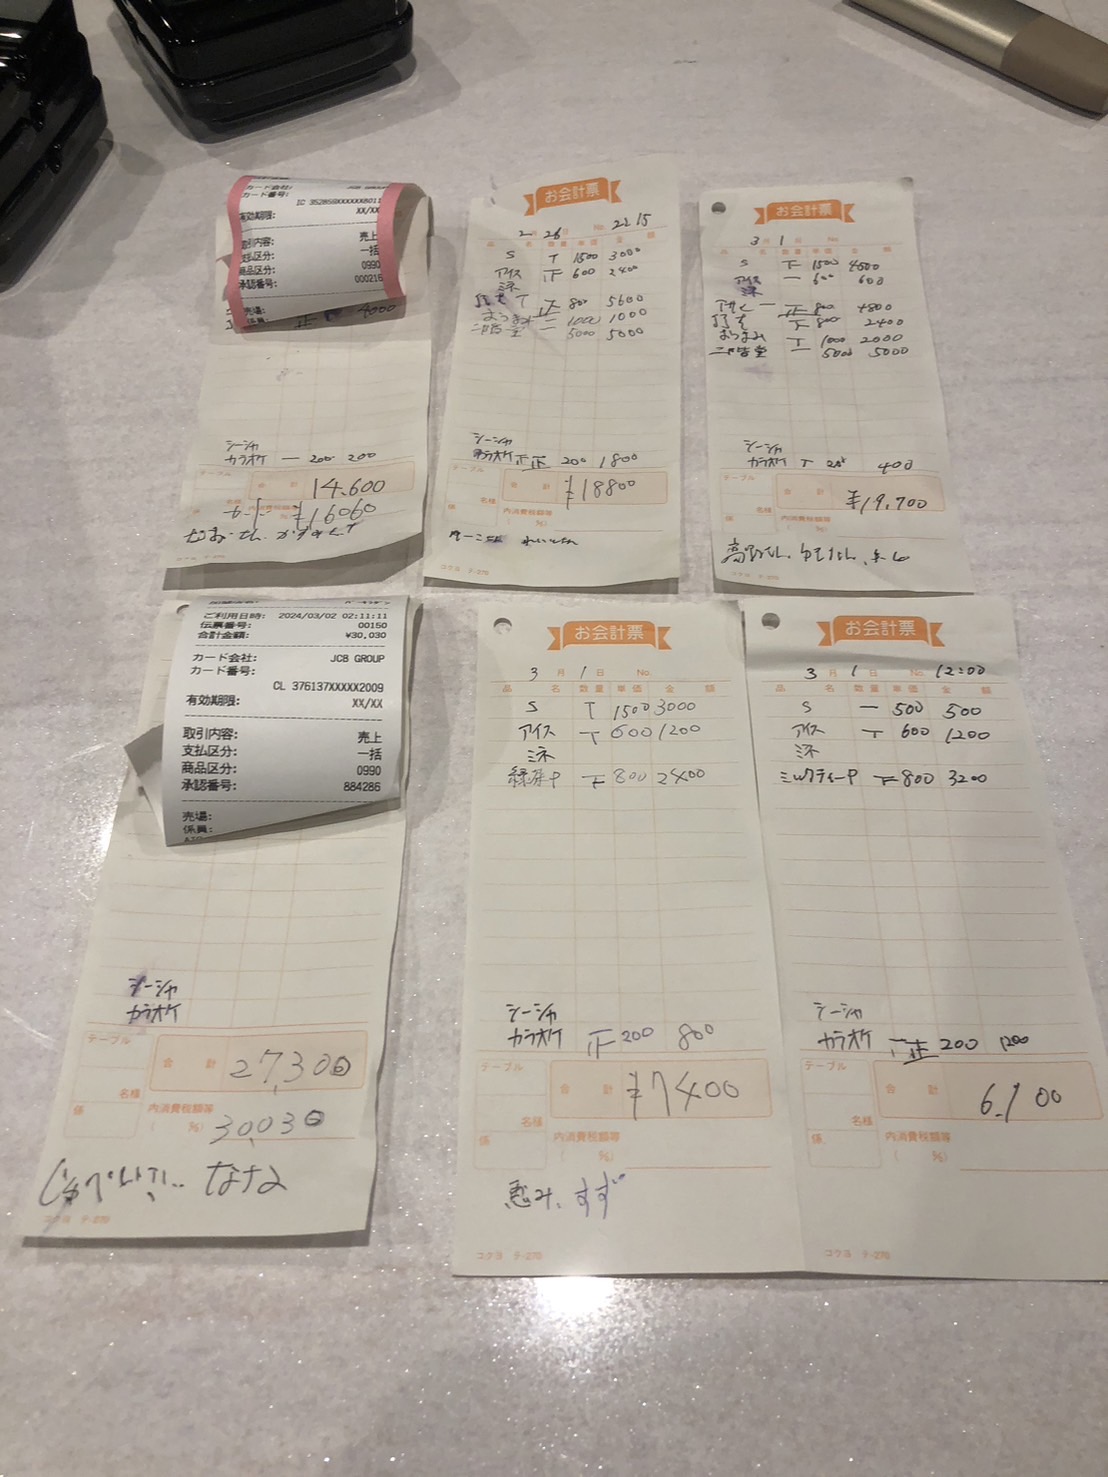 カード会社: JCB GROUP
カード番号:
IC 352859XXXXXX6011
有効期限: XX/XX
取引内容: 売上
支払区分: 一括
商品区分: 0990
承認番号: 000216
売場:
係員: 正 4000
シーシャ
カラオケ 一 200 200
テーブル
合計 14,600
カード ¥16060
お会計票
2月26日 No. 2215
品名 数量 単価 金額
S T 1500 3000
アイス 正 600 2400
ミネ
800 5600
おつまみ 一 1000 1000
二階堂 一 5000 5000
シーシャ
カラオケ 正 200 1800
テーブル
合計 ¥18800
名様
係 内消費税額等
( %)
コクヨ テ-270
お会計票
3月1日 No.
品名 数量 単価 金額
S 下 1500 4500
アイス 一 600 600
ミネ
800 4800
下 800 2400
おつまみ T 1000 2000
二階堂 一 5000 5000
シーシャ
カラオケ T 200 400
テーブル
合計 ¥19,700
名様
係 内消費税額等
( %)
コクヨ テ-270
ご利用日時: 2024/03/02 02:11:11
伝票番号: 00150
合計金額: ¥30,030
カード会社: JCB GROUP
カード番号:
CL 376137XXXXX2009
有効期限: XX/XX
取引内容: 売上
支払区分: 一括
商品区分: 0990
承認番号: 884286
売場:
係員:
シーシャ
カラオケ
テーブル
合計 27,300
名様
係 内消費税額等
( %) 30,030
なな
コクヨ テ-270
お会計票
3月1日 No.
品名 数量 単価 金額
S T 1500 3000
アイス T 600 1200
ミネ
緑茶P 下 800 2400
シーシャ
カラオケ 正 200 800
テーブル
合計 ¥7400
名様
係 内消費税額等
( %)
恵み、すず
コクヨ テ-270
お会計票
3月1日 No. 12:00
品名 数量 単価 金額
S 一 500 500
アイス T 600 1200
ミネ
ミルクティーP 800 3200
シーシャ
カラオケ 一正 200 1200
テーブル
合計 6,100
名様
係 内消費税額等
( %)
コクヨ テ-270